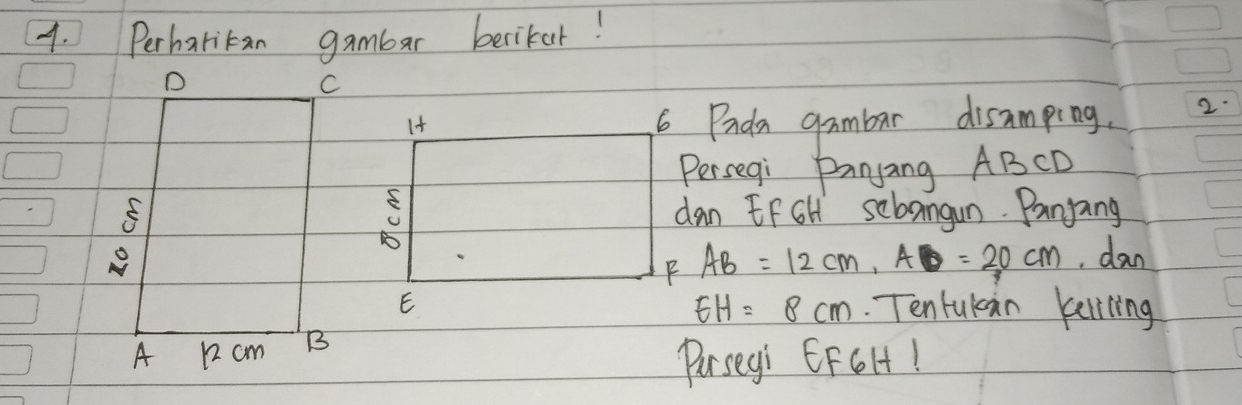 1. Perhatikan gambar berikut!
D C
H G
20 cm
8 cm
E F
A 12 cm B
Pada gambar disamping,
Persegi Panjang ABCD
dan EFGH sebangun. Panjang
AB = 12 cm, AD = 20 cm, dan
EH = 8 cm. Tentukan keliling
Persegi EFGH!
2.